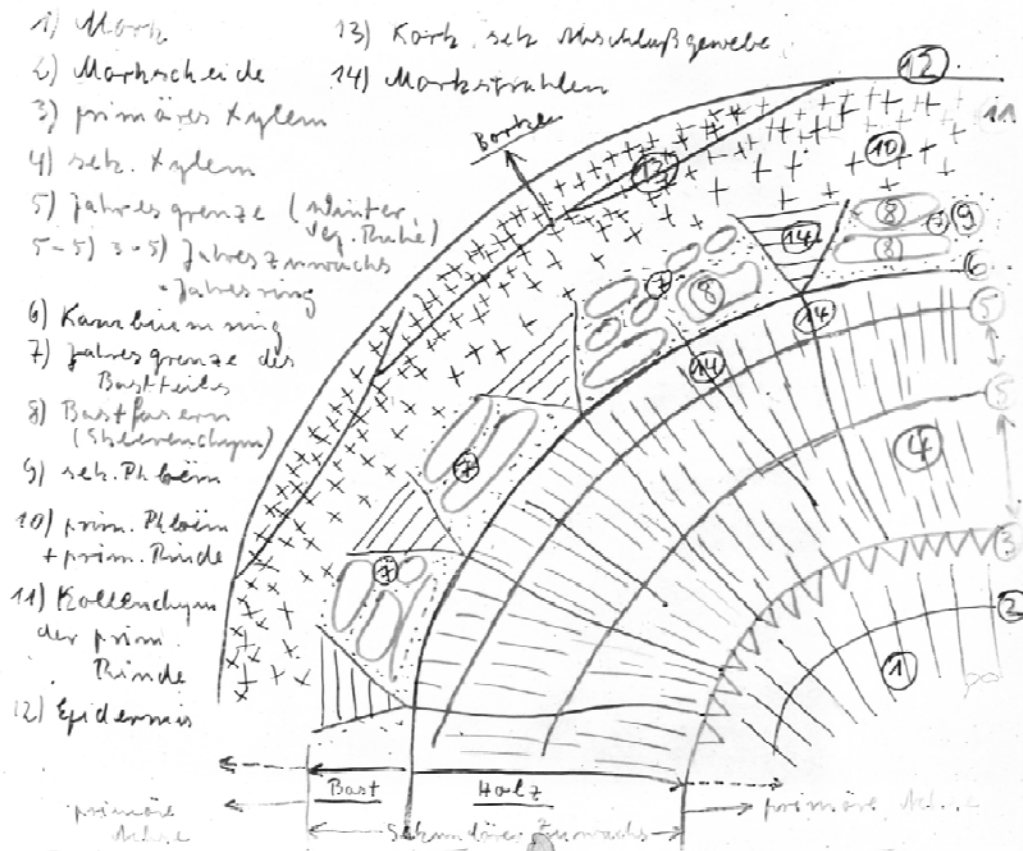 1) Mark
2) Markscheide
3) primäres Xylem
4) sek. Xylem
5) Jahresgrenze (Winter,
Veg. Ruhe)
5-5) 3-5) Jahreszuwachs
- Jahresring
6) Kambiumring
7) Jahresgrenze des
Bastteiles
8) Bastfasern
(Sklerenchym)
9) sek. Phloëm
10) prim. Phloëm
+ prim. Rinde
11) Kollenchym
der prim.
Rinde
12) Epidermis
13) Kork, sek. Abschlußgewebe
14) Markstrahlen
Borke
12
11
13
10
14
8
7
9
8
6
7
8
14
5
14
5
4
7
3
7
2
1
Bast
Holz
primäre
Achse
sekundärer Zuwachs
primäre Achse